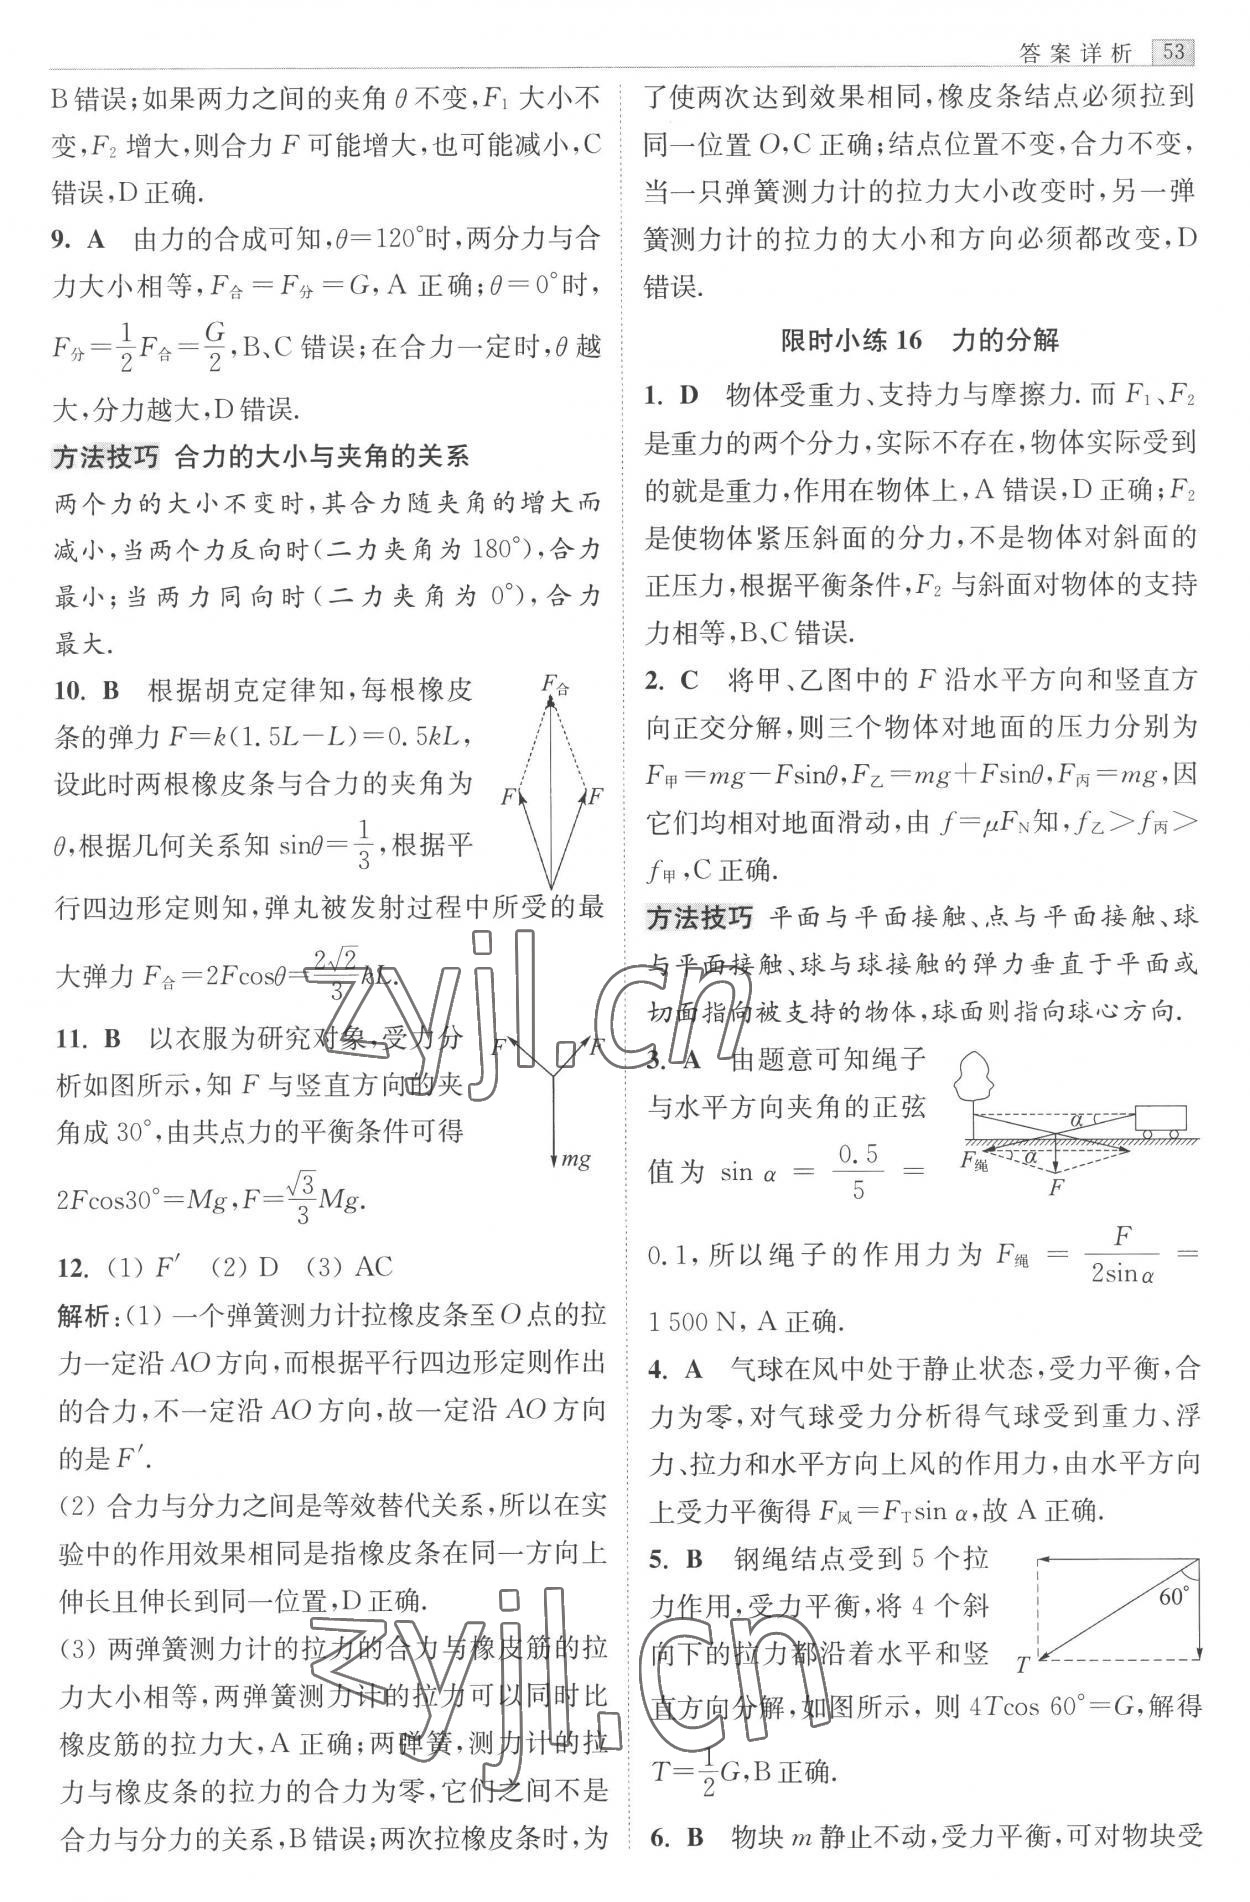 答案详析 53
B错误;如果两力之间的夹角θ不变,F₁大小不
变,F₂增大,则合力F可能增大,也可能减小,C
错误,D正确.
9. A 由力的合成可知,θ=120°时,两分力与合
力大小相等,F合=F分=G,A正确;θ=0°时,
F分=1/2F合=G/2,B、C错误;在合力一定时,θ越
大,分力越大,D错误.
方法技巧 合力的大小与夹角的关系
两个力的大小不变时,其合力随夹角的增大而
减小,当两个力反向时(二力夹角为180°),合力
最小;当两力同向时(二力夹角为0°),合力
最大.
10. B 根据胡克定律知,每根橡皮
条的弹力F=k(1.5L-L)=0.5kL,
设此时两根橡皮条与合力的夹角为
θ,根据几何关系知sinθ=1/3,根据平
行四边形定则知,弹丸被发射过程中所受的最
大弹力F合=2Fcosθ=2√2/3kL.
F合
F F
11. B 以衣服为研究对象,受力分
析如图所示,知F与竖直方向的夹
角成30°,由共点力的平衡条件可得
2Fcos30°=Mg,F=√3/3Mg.
F F
mg
12. (1) F′ (2) D (3) AC
解析:(1) 一个弹簧测力计拉橡皮条至O点的拉
力一定沿AO方向,而根据平行四边形定则作出
的合力,不一定沿AO方向,故一定沿AO方向
的是F′.
(2) 合力与分力之间是等效替代关系,所以在实
验中的作用效果相同是指橡皮条在同一方向上
伸长且伸长到同一位置,D正确.
(3) 两弹簧测力计的拉力的合力与橡皮筋的拉
力大小相等,两弹簧测力计的拉力可以同时比
橡皮筋的拉力大,A正确;两弹簧,测力计的拉
力与橡皮条的拉力的合力为零,它们之间不是
合力与分力的关系,B错误;两次拉橡皮条时,为
了使两次达到效果相同,橡皮条结点必须拉到
同一位置O,C正确;结点位置不变,合力不变,
当一只弹簧测力计的拉力大小改变时,另一弹
簧测力计的拉力的大小和方向必须都改变,D
错误.
限时小练16 力的分解
1. D 物体受重力、支持力与摩擦力.而F₁、F₂
是重力的两个分力,实际不存在,物体实际受到
的就是重力,作用在物体上,A错误,D正确;F₂
是使物体紧压斜面的分力,不是物体对斜面的
正压力,根据平衡条件,F₂与斜面对物体的支持
力相等,B、C错误.
2. C 将甲、乙图中的F沿水平方向和竖直方
向正交分解,则三个物体对地面的压力分别为
F甲=mg-Fsinθ,F乙=mg+Fsinθ,F丙=mg,因
它们均相对地面滑动,由f=μFN知,f乙>f丙>
f甲,C正确.
方法技巧 平面与平面接触、点与平面接触、球
与平面接触、球与球接触的弹力垂直于平面或
切面指向被支持的物体,球面则指向球心方向.
3. A 由题意可知绳子
与水平方向夹角的正弦
值为 sin α = 0.5/5 =
0.1,所以绳子的作用力为 F绳 = F/2sin α =
1 500 N, A正确.
α
F绳 α
F
4. A 气球在风中处于静止状态,受力平衡,合
力为零,对气球受力分析得气球受到重力、浮
力、拉力和水平方向上风的作用力,由水平方向
上受力平衡得F风=FTsin α,故A正确.
5. B 钢绳结点受到5个拉
力作用,受力平衡,将4个斜
向下的拉力都沿着水平和竖
直方向分解,如图所示,则4Tcos 60°=G,解得
T=1/2G,B正确.
60°
T
6. B 物块m静止不动,受力平衡,可对物块受
zyjl.cn
zyjl.cn